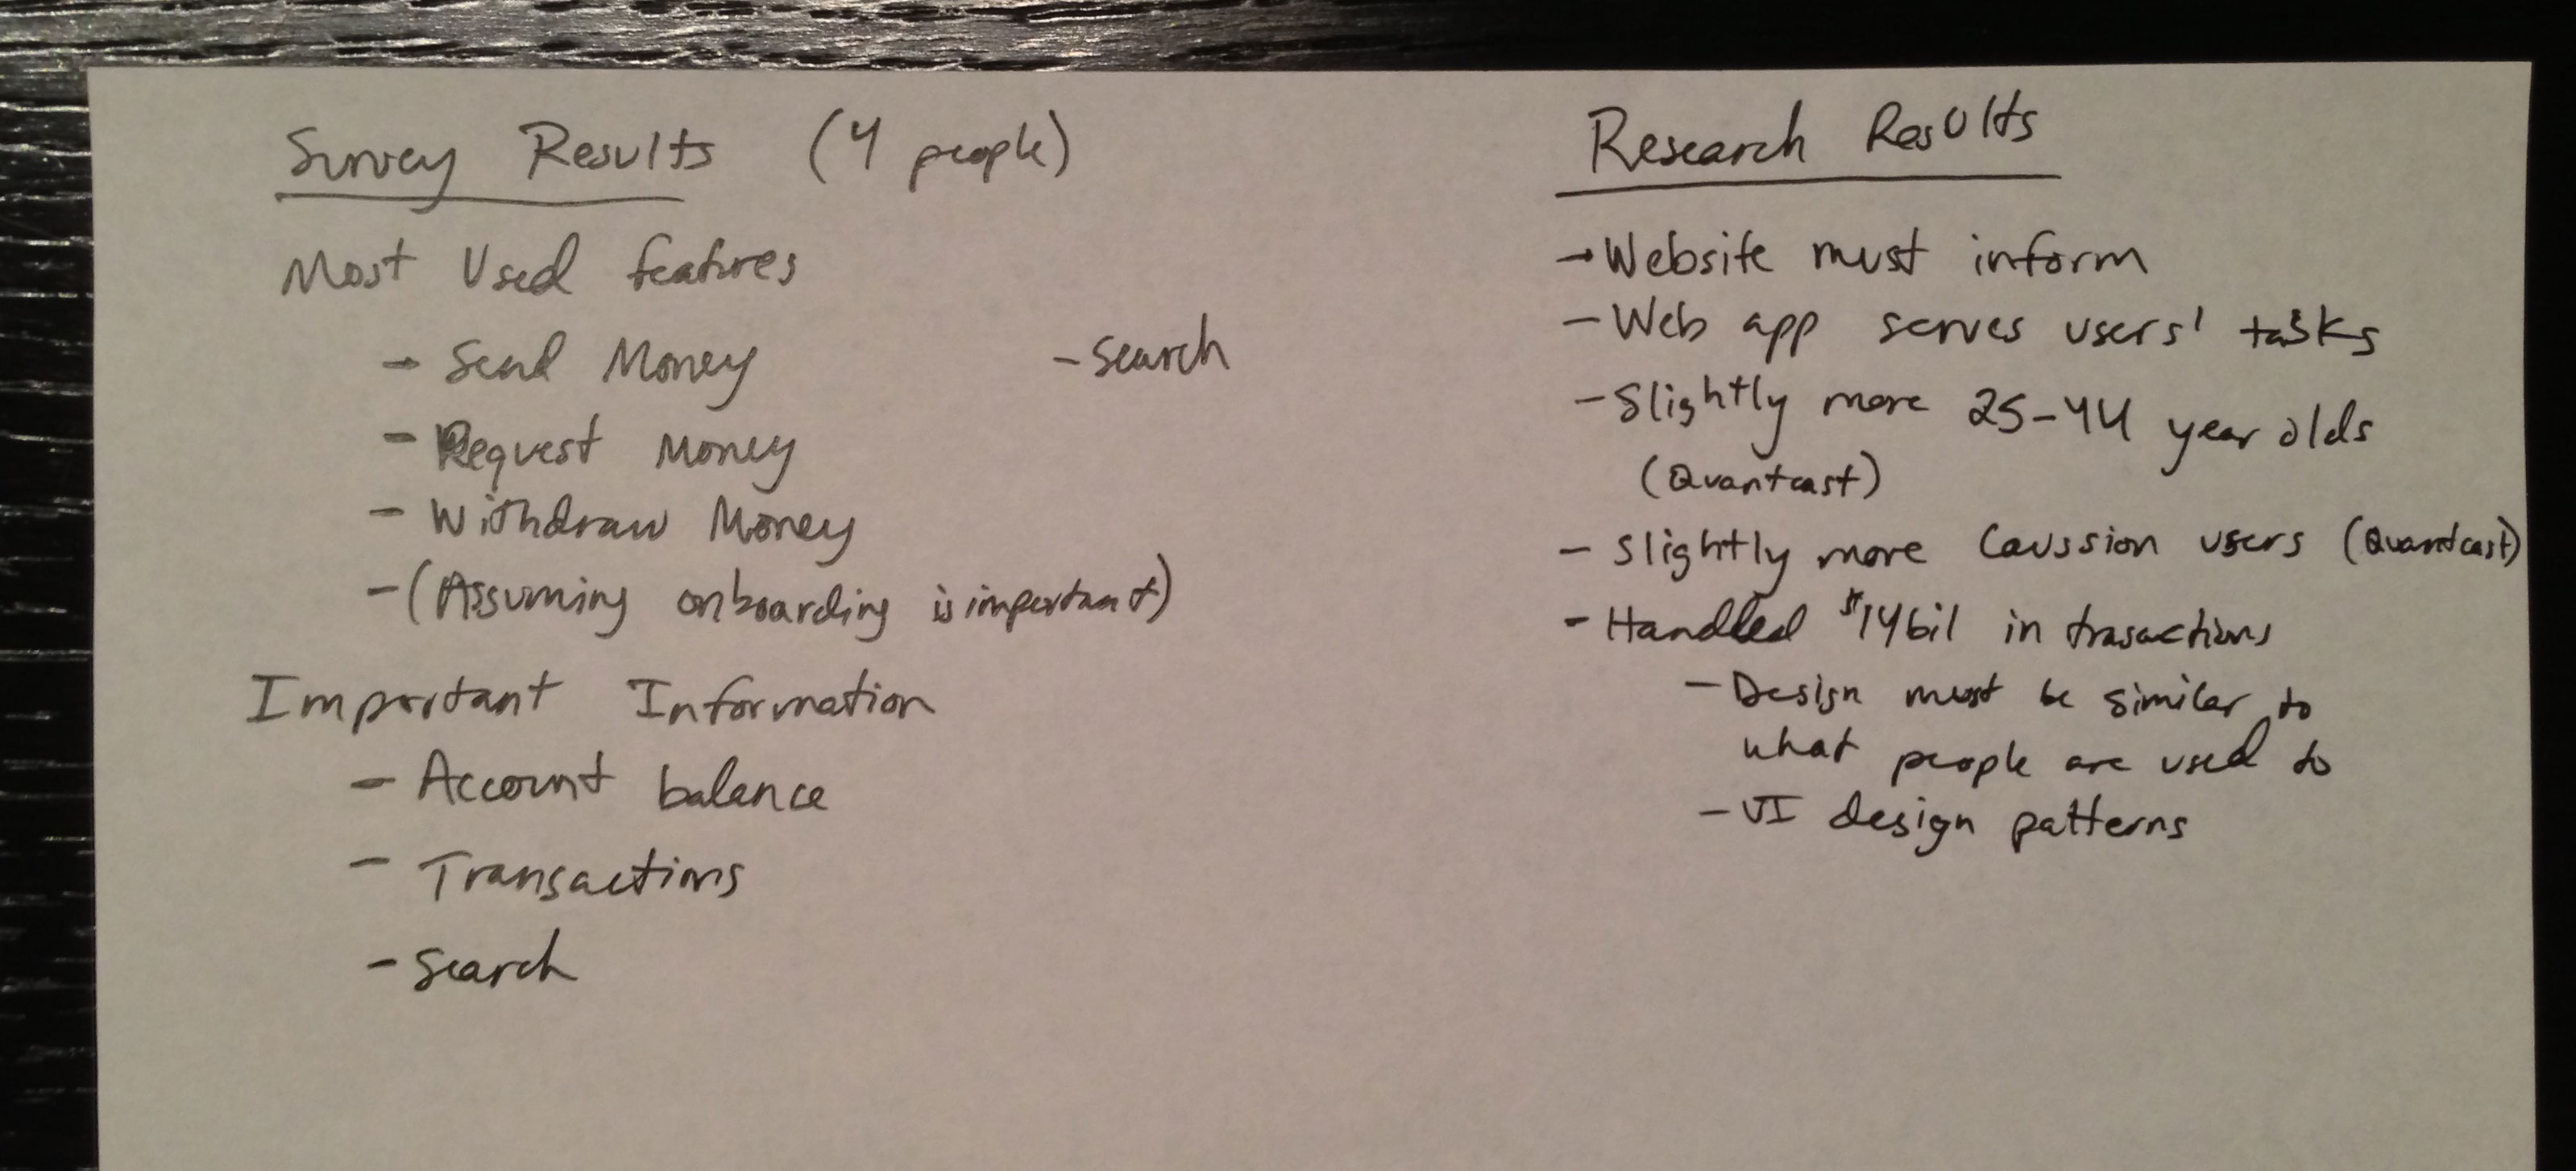 Survey Results (4 people)
Most Used features
- Send Money
- Search
- Request Money
- Withdraw Money
- (Assuming onboarding is important)
Important Information
- Account balance
- Transactions
- Search
Research Results
- Website must inform
- Web app serves users' tasks
- Slightly more 25-44 year olds
(Quantcast)
- Slightly more Caussion users (Quantcast)
- Handled $14bil in trasactions
- Design must be similar to
what people are used to
- UI design patterns